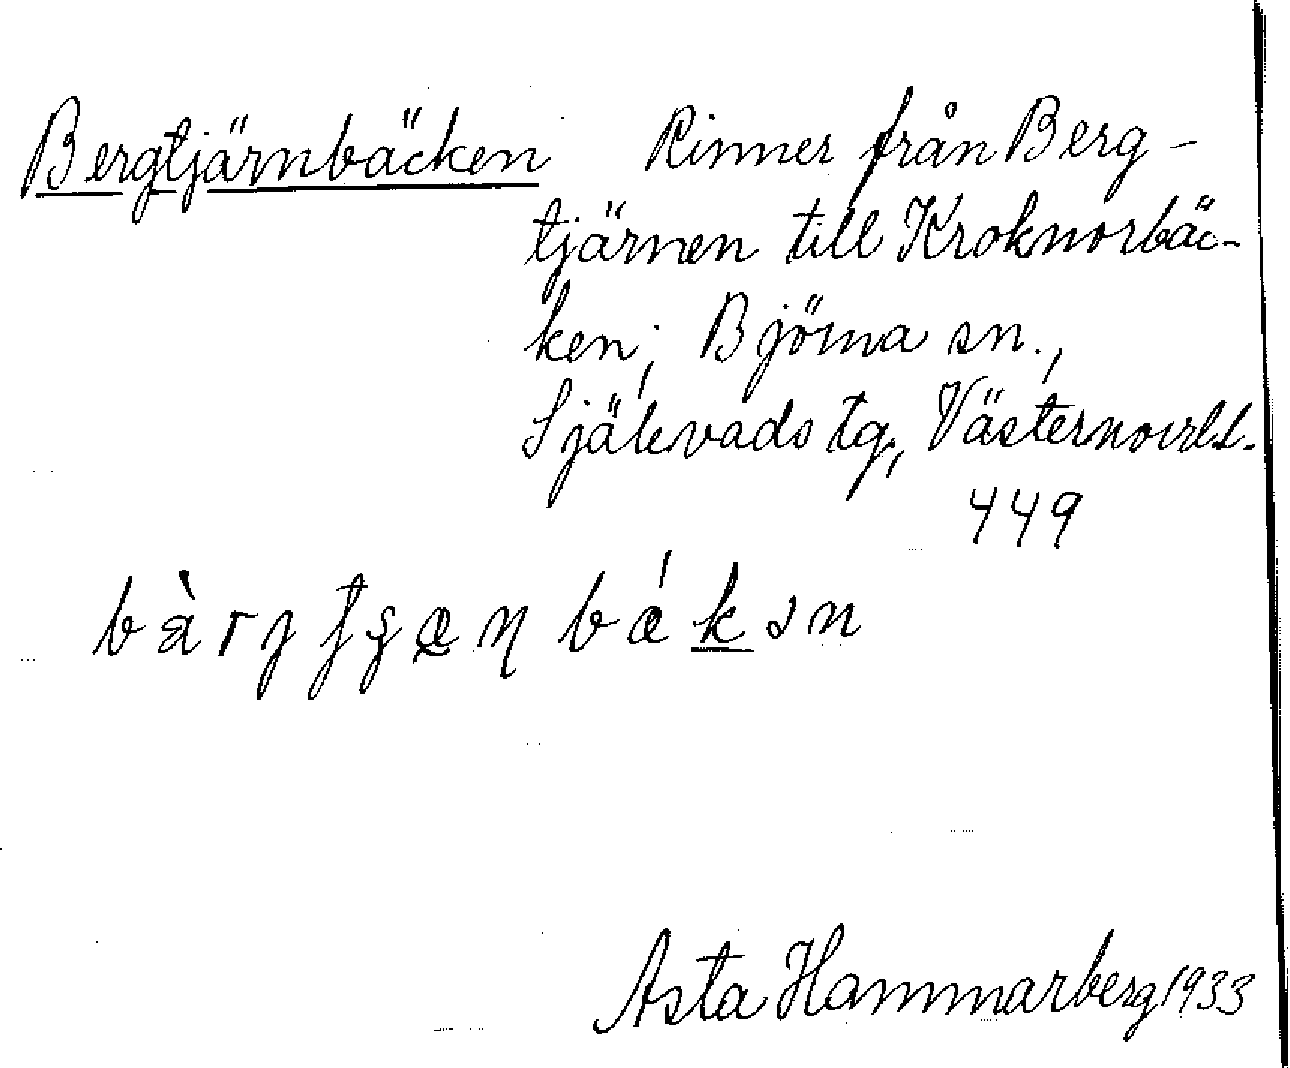 Bergtjärnbäcken Rinner från Berg-
tjärnen till Kroknorbäc-
ken, Björna sn.,
Själevads tg, Västernorrl.
449
Asta Hammarberg 1933